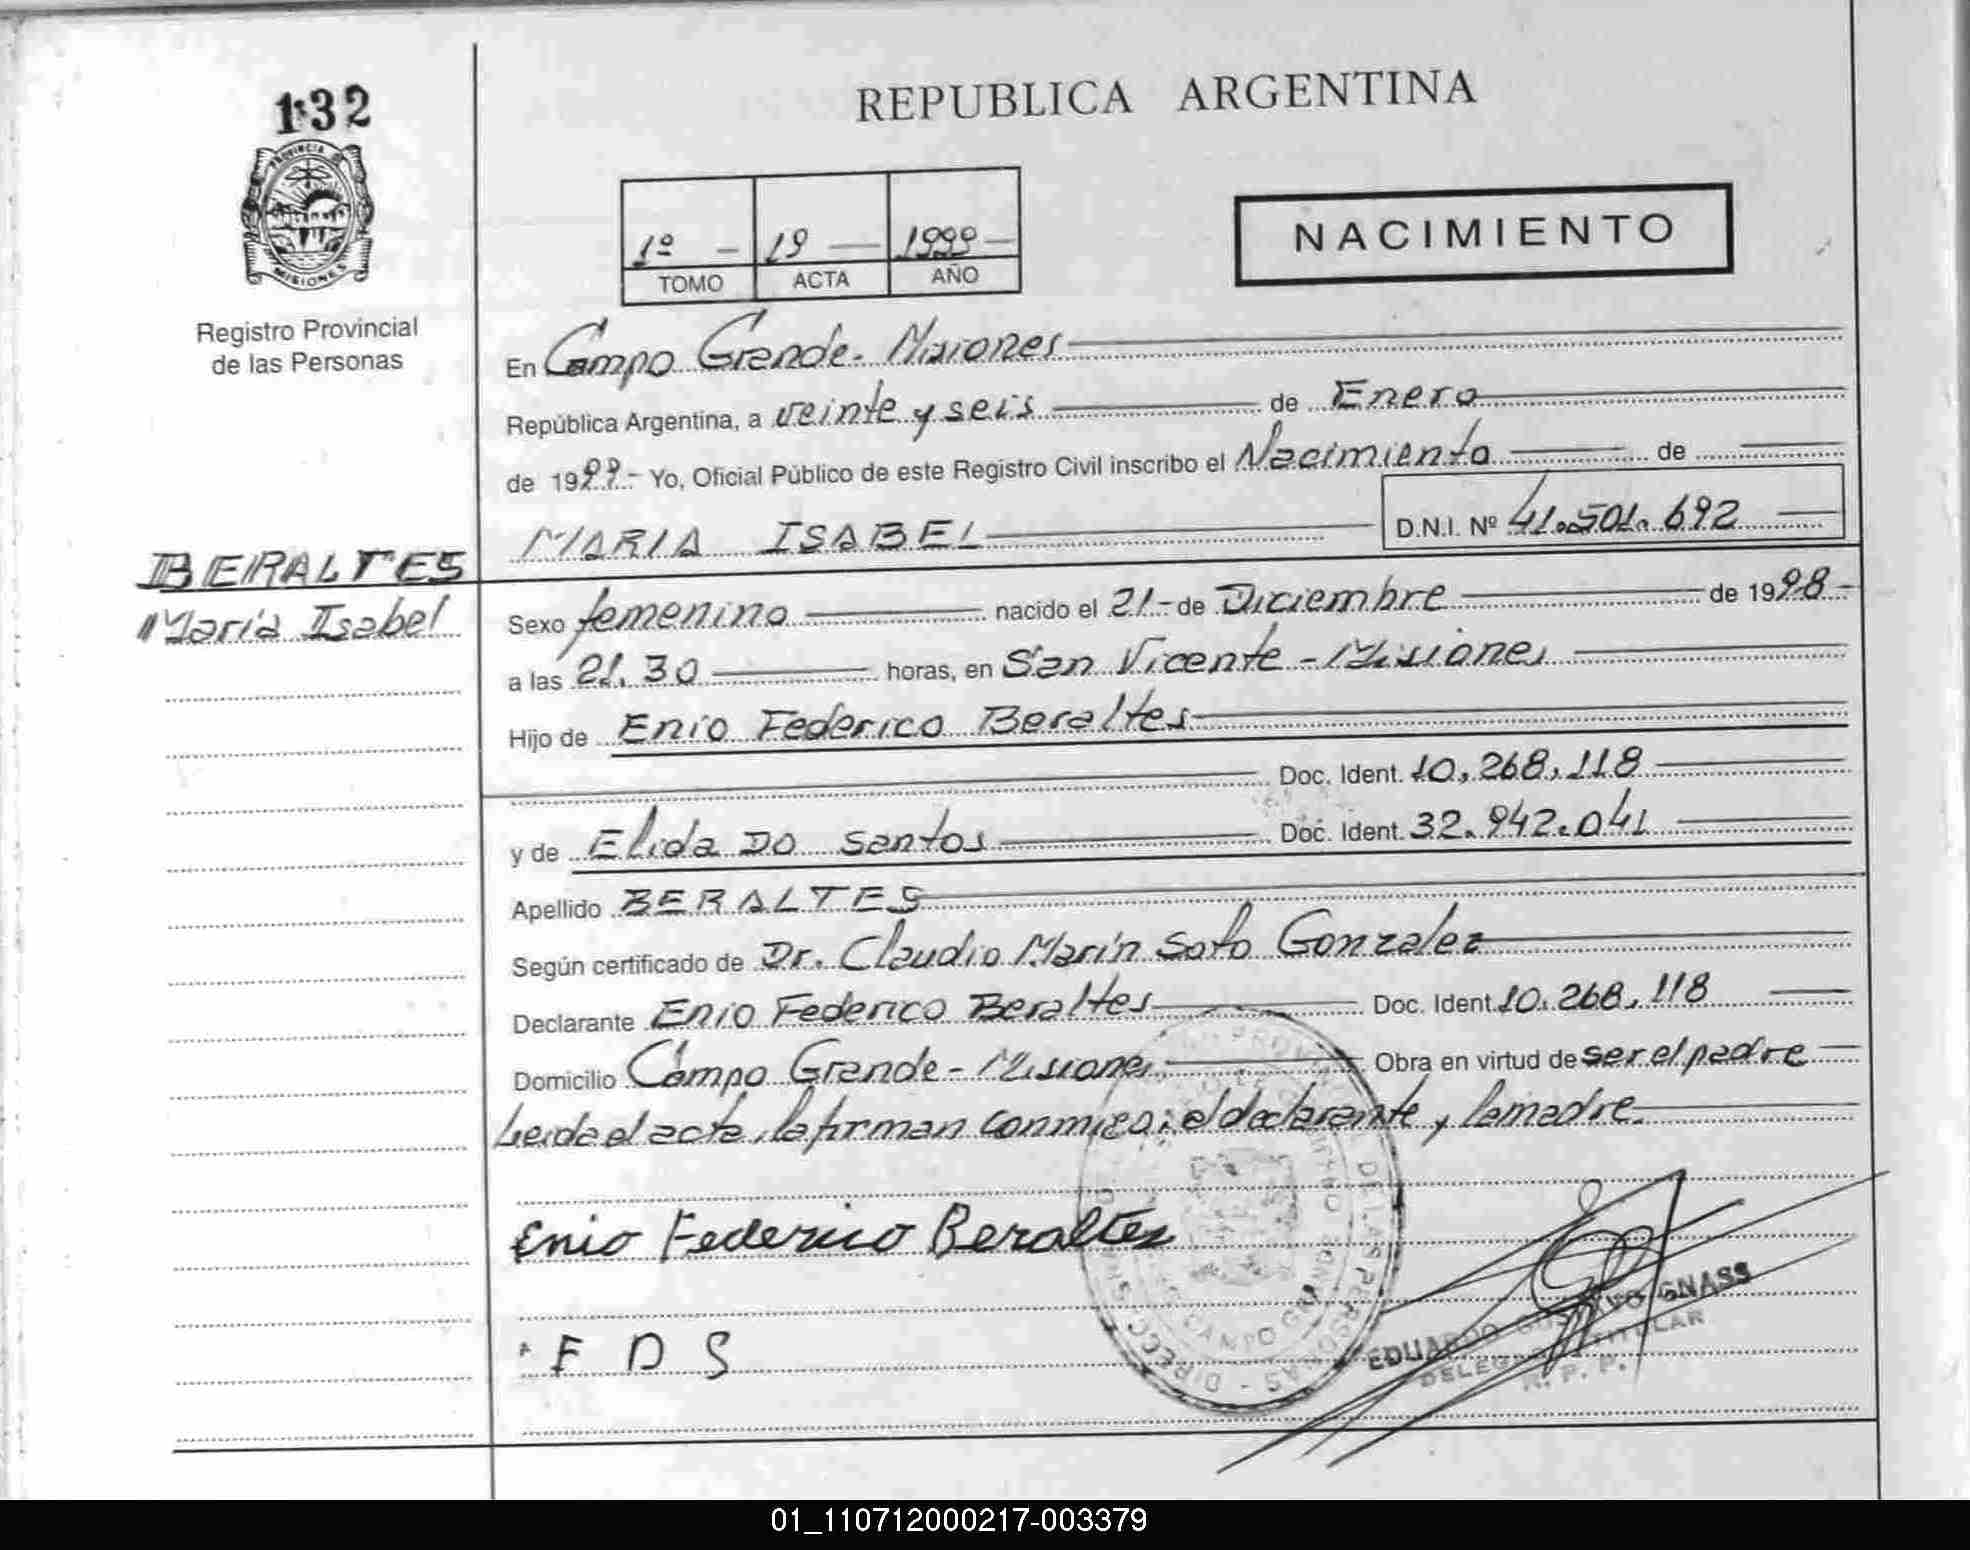 132
PROVINCIA DE
MISIONES
Registro Provincial
de las Personas
BERALTES
Maria Isabel
REPUBLICA ARGENTINA
1º - 19 — 1999 —
TOMO ACTA AÑO
NACIMIENTO
En Campo Grande - Misiones
República Argentina, a veinte y seis de Enero
de 1999.- Yo, Oficial Público de este Registro Civil inscribo el Nacimiento de
MARIA ISABEL D.N.I. Nº 41.501.692
Sexo femenino nacido el 21 - de Diciembre de 1998 -
a las 21.30 horas, en San Vicente - Misiones
Hijo de Enio Federico Beraltes
Doc. Ident. 10.268.118
y de Elida Do Santos Doc. Ident. 32.942.041
Apellido BERALTES
Según certificado de Dr. Claudio Marín Soto Gonzalez
Declarante Enio Federico Beraltes Doc. Ident. 10.268.118
Domicilio Campo Grande - Misiones Obra en virtud de ser el padre
Leida el acta, la firman conmigo: el declarante y la madre.
Enio Federico Beraltes
E D S
DE LAS PERSONAS - DIRECC
CAMPO GRANDE
EDUARDO GUSTAVO GNASS
DELEGADO TITULAR
R. P. P.
01_110712000217-003379